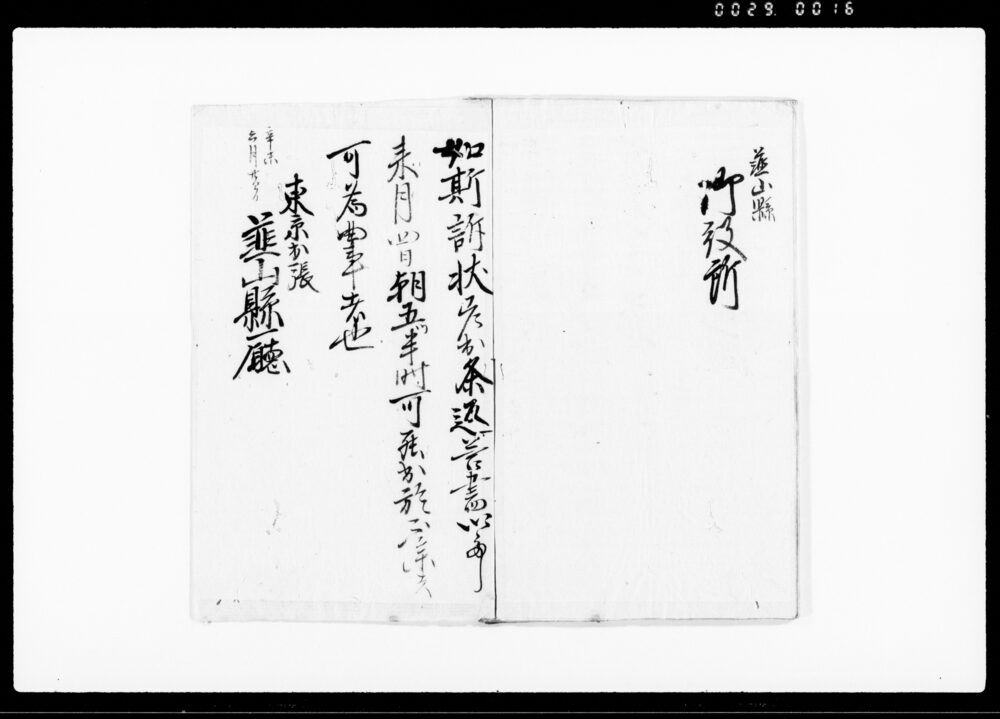 0029. 0016
韮山縣
御役所
如斯訴状差出条返答書以
来月四日朝五半時可罷出於不参者
可為曲事者也
辛未
六月廿
東京出張
韮山縣廳